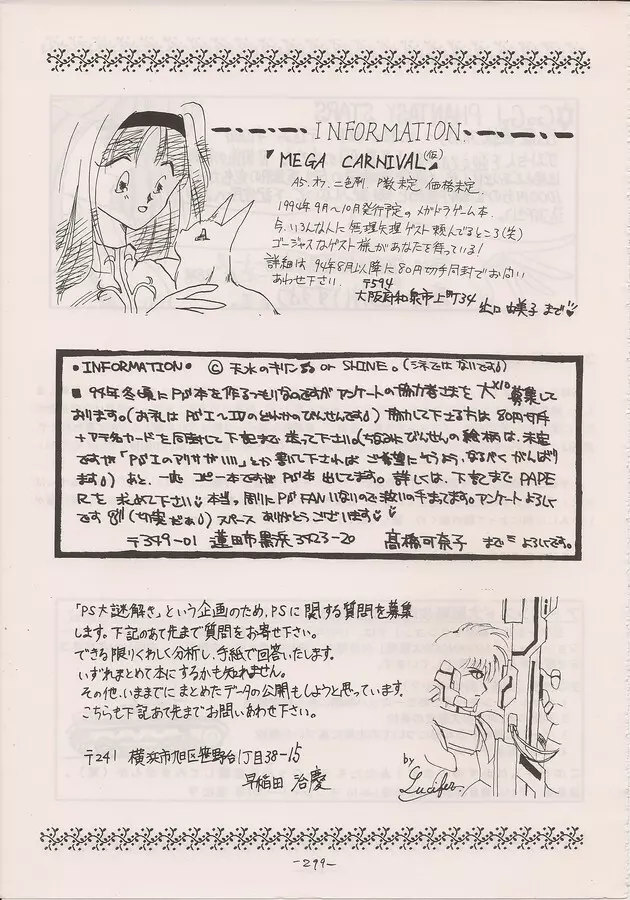 INFORMATION.
「MEGA CARNIVAL(仮)
A5.オフ.二色刷 P数未定 価格未定.
1994年9月〜10月発行予定のメガドラゲーム本
今、いろんな人に無理矢理ゲスト頼んでるところ(笑)
ゴージャスなゲスト様があなたを待っている!
詳細は 94年8月以降に80円切手同封でお問い
あわせ下さい. 〒594
大阪府和泉市上町34 出口 由美子 まで
•INFORMATION• © 天水のキリン or SHINE。(シネではないです)
■ 94年冬頃にPS本を作るつもりなのですがアンケートの協力者さまを大×10募集して
おります。(お礼はPSⅠ〜Ⅳのどれかのびんせんです) 協力して下さる方は80円切手
+アテ名カードを同封して下記まで送って下さい。(ちなみにびんせんの絵柄は、未定
ですが「PSⅠのアリサがいい」とか書いて下さればご希望にそうよう、なるべくがんばり
ます) あと、一応コピー本ですがPS本出してます。詳しくは、下記までPAPE
Rを求めて下さい 本当。周りにPS FANいないので救いの手まってます。アンケートよろしく
です (切実だぁ) スペース ありがとうございます
〒349-01 蓮田市黒浜3423-20 高橋可奈子 まで よろしくです。
「PS大謎解き」という企画のため、PSに関する質問を募集
します。下記のあて先まで質問をお寄せ下さい。
できる限りくわしく分析し、手紙で回答いたします。
いずれまとめて本にするかも知れません。
その他、いままでにまとめたデータの公開もしようと思っています。
こちらも下記あて先までお問いあわせ下さい。
〒241 横浜市旭区笹野台1丁目38-15
早稲田 治慶
by Lucifer.
-299-